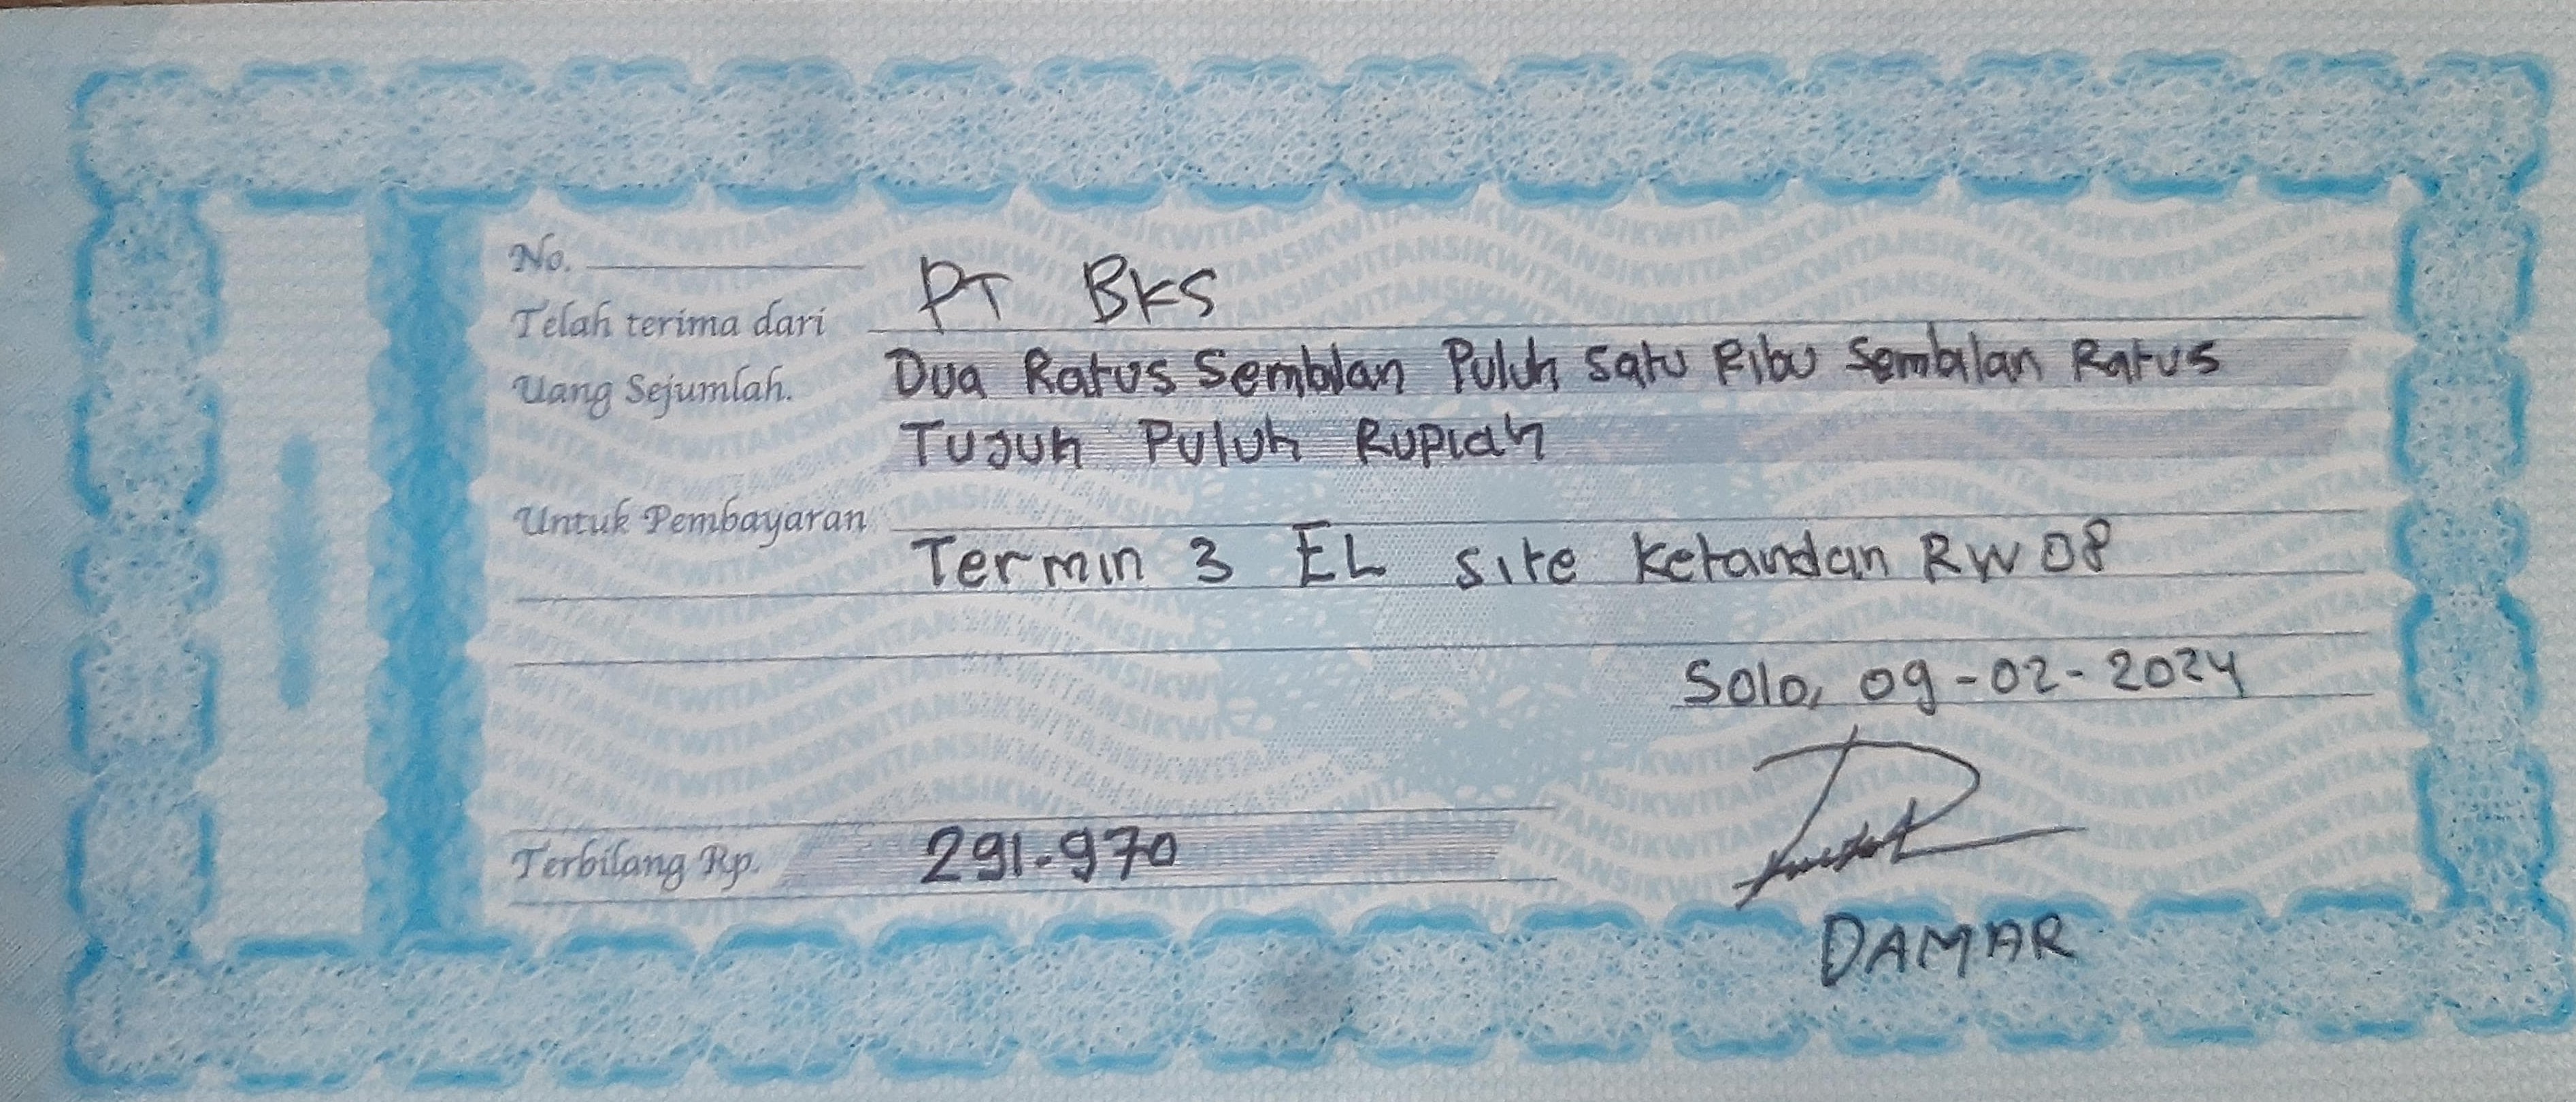 No.
Telah terima dari PT BKS
Uang Sejumlah. Dua Ratus Sembilan Puluh Satu Ribu Sembilan Ratus
Tujuh Puluh Rupiah
Untuk Pembayaran
Termin 3 EL site Ketandan RW 08
Solo, 09-02-2024
Terbilang Rp. 291.970
DAMAR